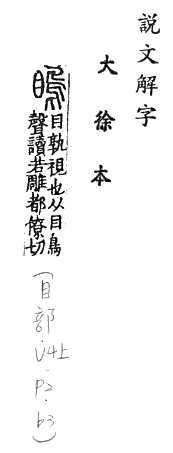 說文解字
大徐本
瞗
目孰視也从目鳥
聲讀若雕都僚切
(目部·U4上·P2·b3)